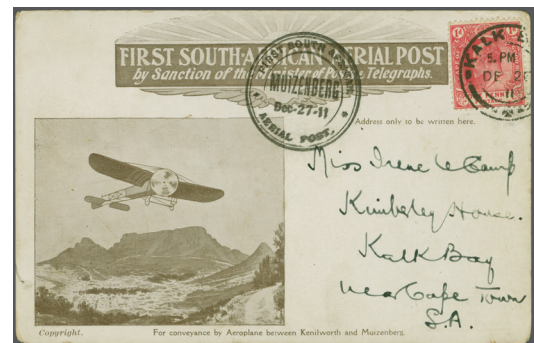 FIRST SOUTH AFRICAN AERIAL POST
by Sanction of the Minister of Posts & Telegraphs.
FIRST SOUTH AFRICAN
MUIZENBERG
Dec-27-11
AERIAL POST.
KALK
5. PM
DE 26
11
PENNY
Address only to be written here.
Miss Irene le Camp
Kimberley House.
Kalk Bay
near Cape Town
S.A.
Copyright.
For conveyance by Aeroplane between Kenilworth and Muizenberg.